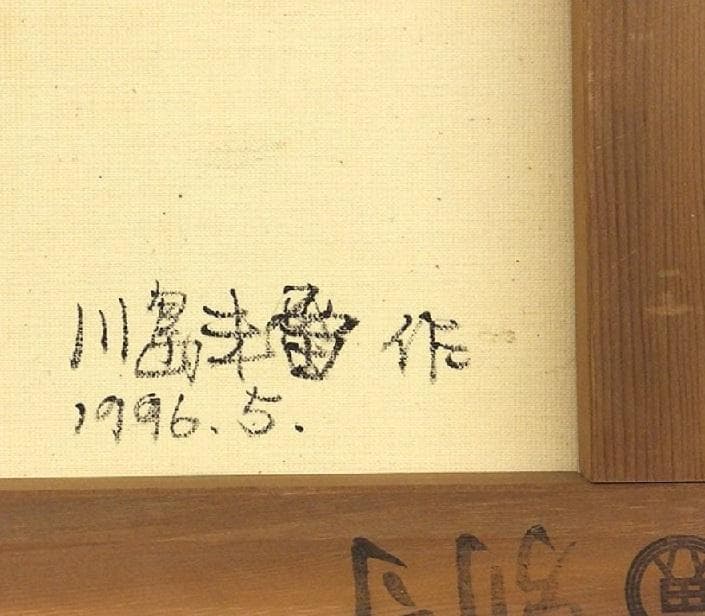 川島未雷 作
1996.5.